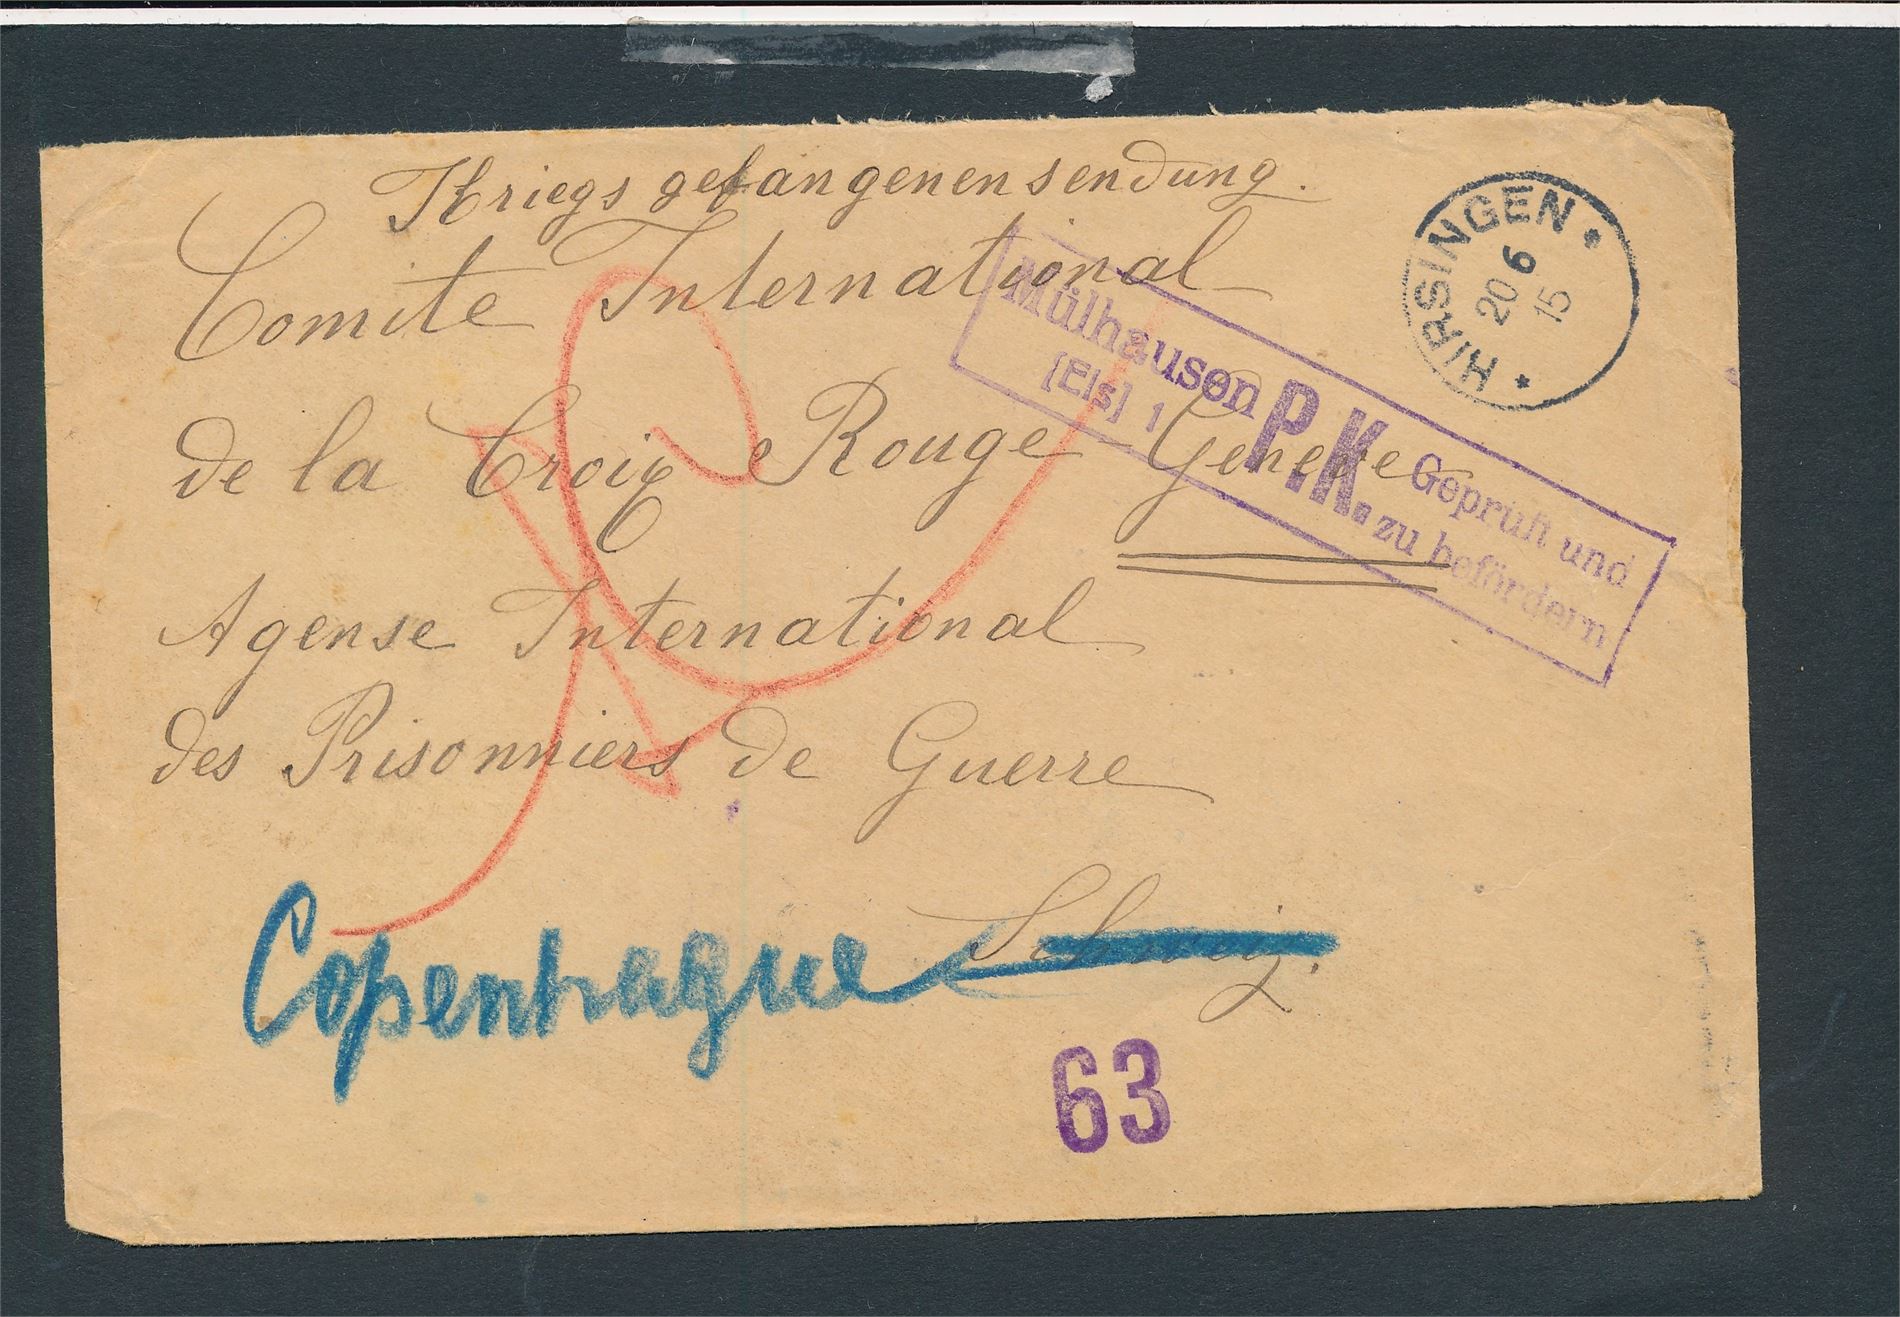 Kriegsgefangenensendung.
Comite International
de la Croix Rouge Geneve
Agense International
des Prisonniers de Guerre
Schweiz.
Copenhague
HIRSINGEN
20 6
15
Mülhausen
[Els] 1
P.K.
Geprüft und
zu befördern
63